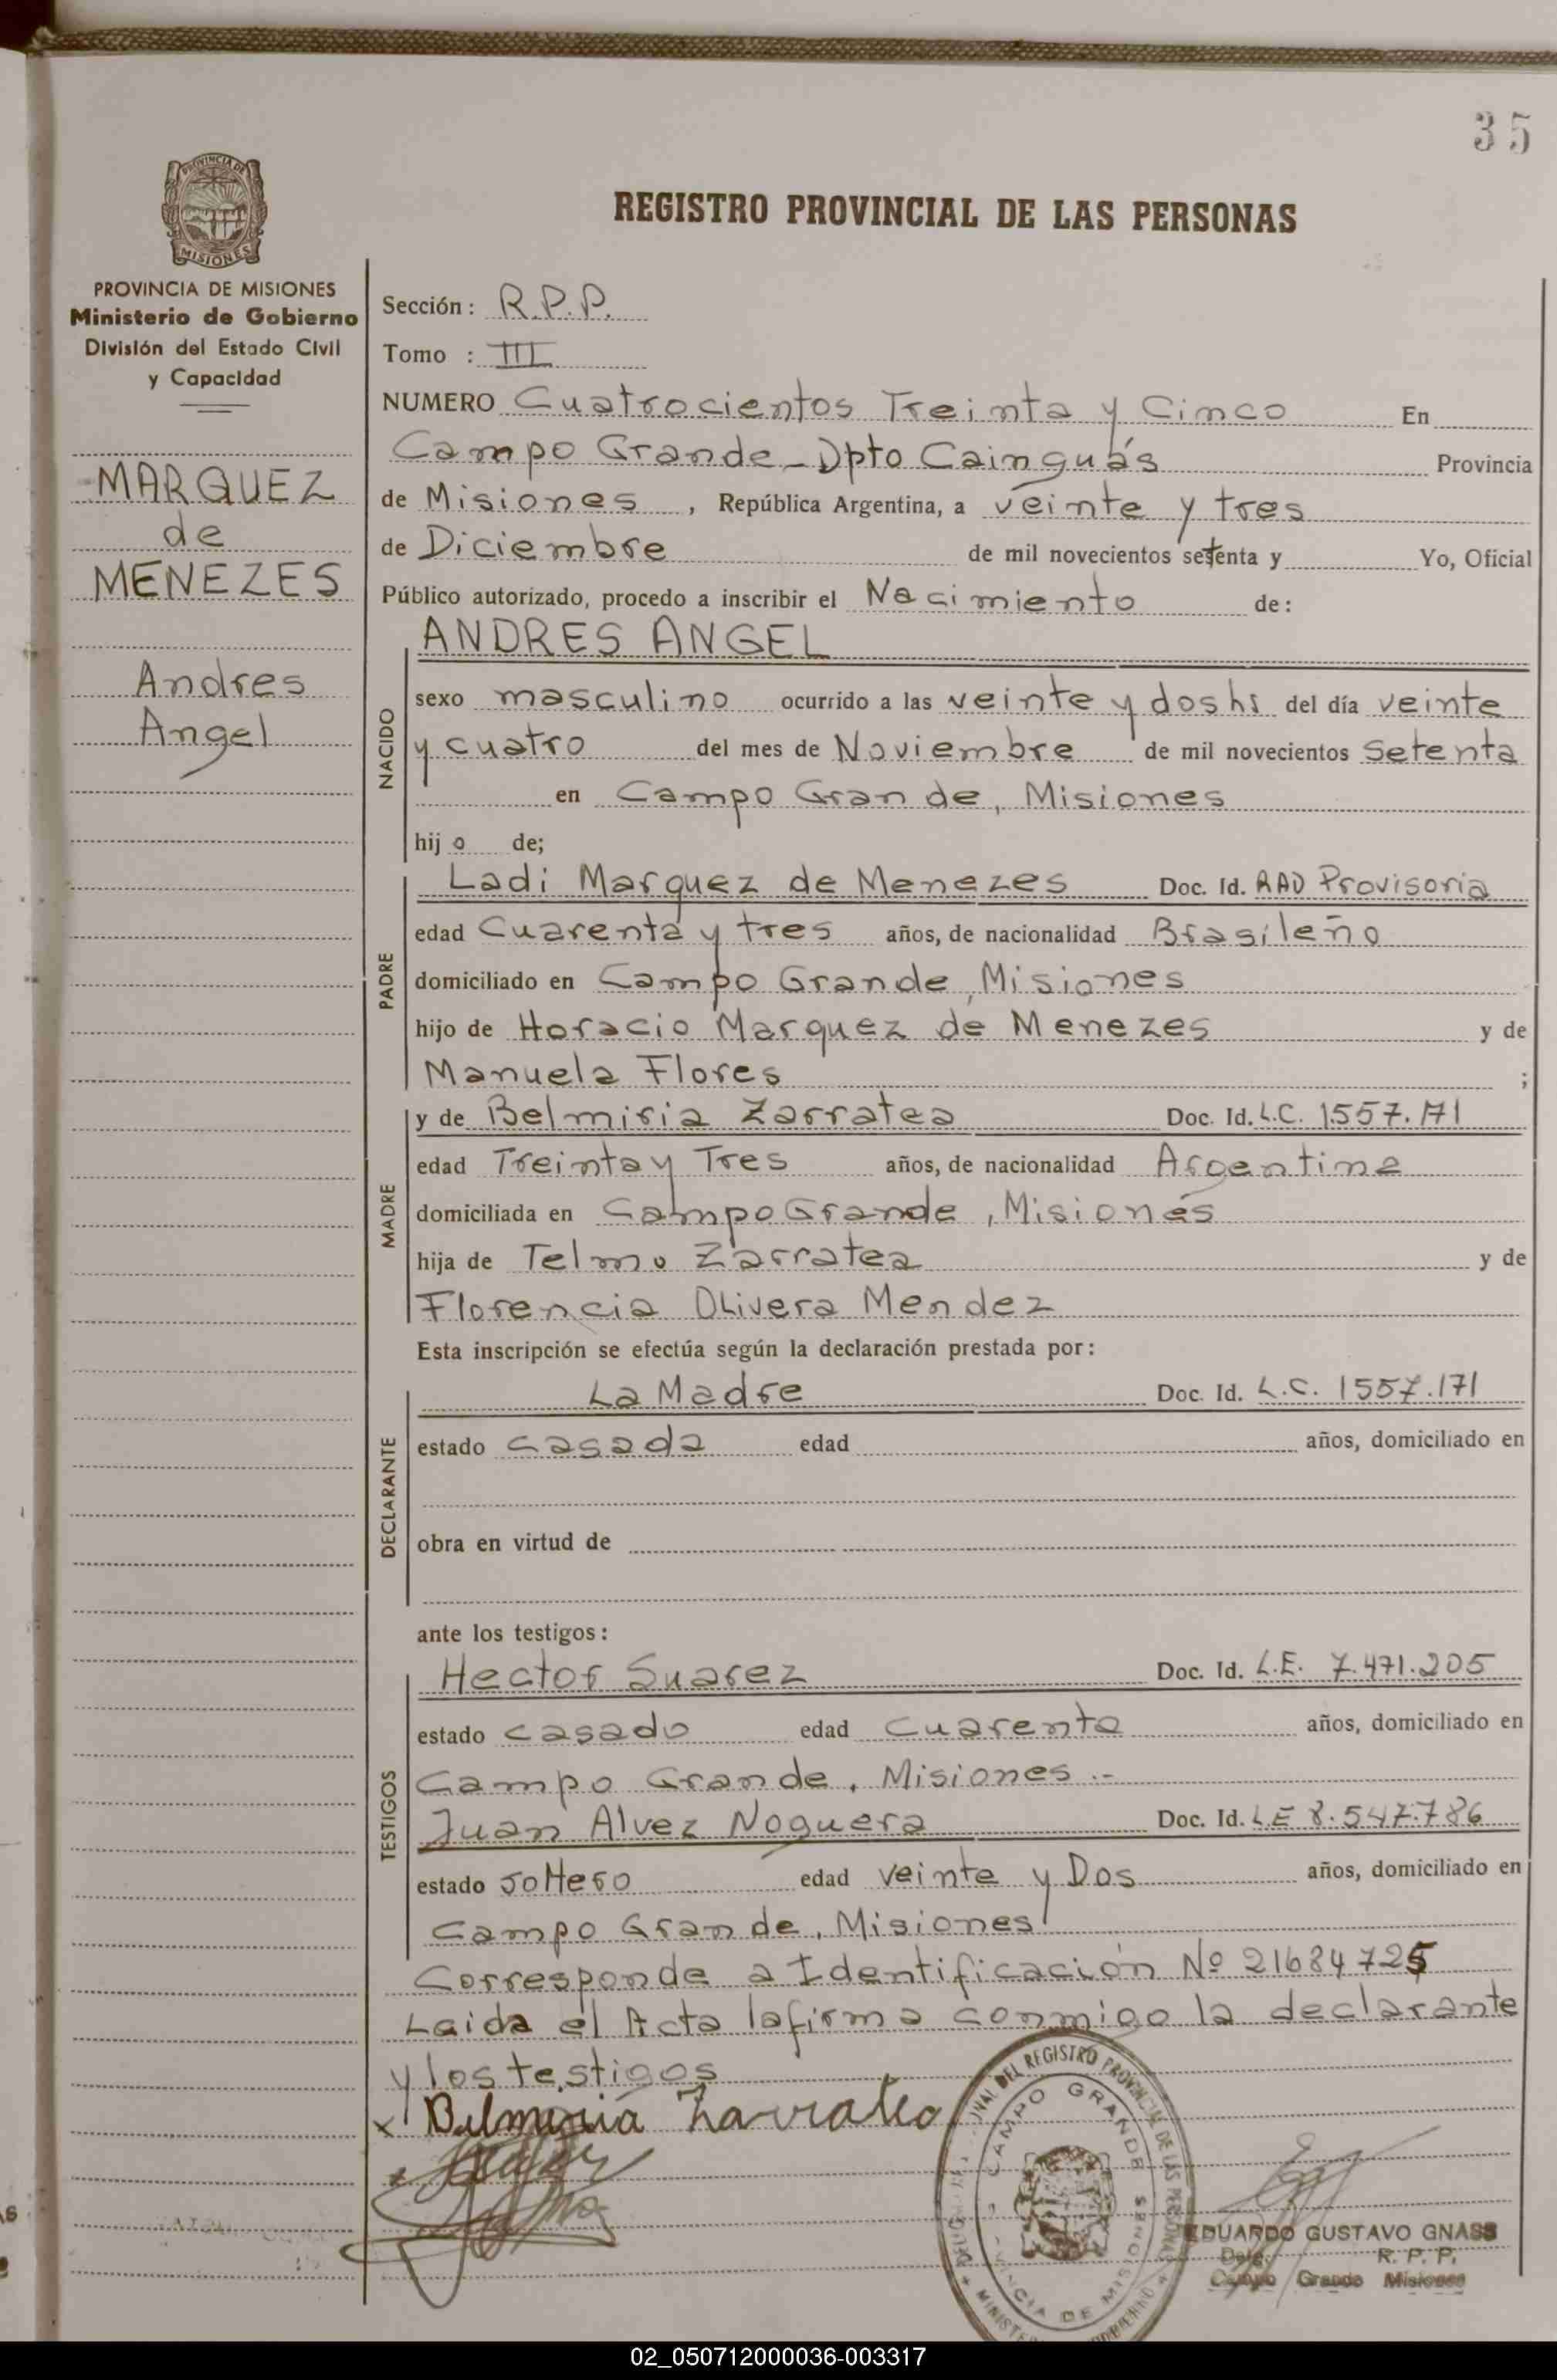 35
PROVINCIA DE
MISIONES
REGISTRO PROVINCIAL DE LAS PERSONAS
PROVINCIA DE MISIONES
Ministerio de Gobierno
División del Estado Civil
y Capacidad
MARQUEZ
de
MENEZES
Andres
Angel
Sección: R.P.P.
Tomo : III
NUMERO Cuatrocientos Treinta y Cinco En
Campo Grande - Dpto Cainguás Provincia
de Misiones, República Argentina, a veinte y tres
de Diciembre de mil novecientos setenta y Yo, Oficial
Público autorizado, procedo a inscribir el Nacimiento de:
NACIDO
ANDRES ANGEL
sexo masculino ocurrido a las veinte y dos hs del día veinte
y cuatro del mes de Noviembre de mil novecientos setenta
en Campo Grande, Misiones
hijo de;
PADRE
Ladi Marquez de Menezes Doc. Id. RAD Provisoria
edad Cuarenta y tres años, de nacionalidad Brasileño
domiciliado en Campo Grande, Misiones
hijo de Horacio Marquez de Menezes y de
Manuela Flores ;
MADRE
y de Belmiria Zarratea Doc. Id. L.C. 1.557.171
edad Treinta y Tres años, de nacionalidad Argentina
domiciliada en Campo Grande, Misiones
hija de Telmo Zarratea y de
Florencia Olivera Mendez
Esta inscripción se efectúa según la declaración prestada por:
DECLARANTE
La Madre Doc. Id. L.C. 1557.171
estado casada edad años, domiciliado en
obra en virtud de
ante los testigos:
TESTIGOS
Hector Suarez Doc. Id. L.E. 7.471.205
estado casado edad cuarenta años, domiciliado en
Campo Grande, Misiones.-
Juan Alvez Noguera Doc. Id. LE 8.547.786
estado soltero edad veinte y Dos años, domiciliado en
Campo Grande, Misiones
Corresponde a Identificación Nº 21684725
Laida el Acta lafirma conmigo la declarante
y los testigos
x Belmiria Zarratea
DEL REGISTRO PROVINCIAL DE LAS PERSONAS
CAMPO GRANDE MISIONES
PROVINCIA DE MISIONES
EDUARDO GUSTAVO GNASS
Deleg. R. P. P.
Campo Grande Misiones
02_050712000036-003317